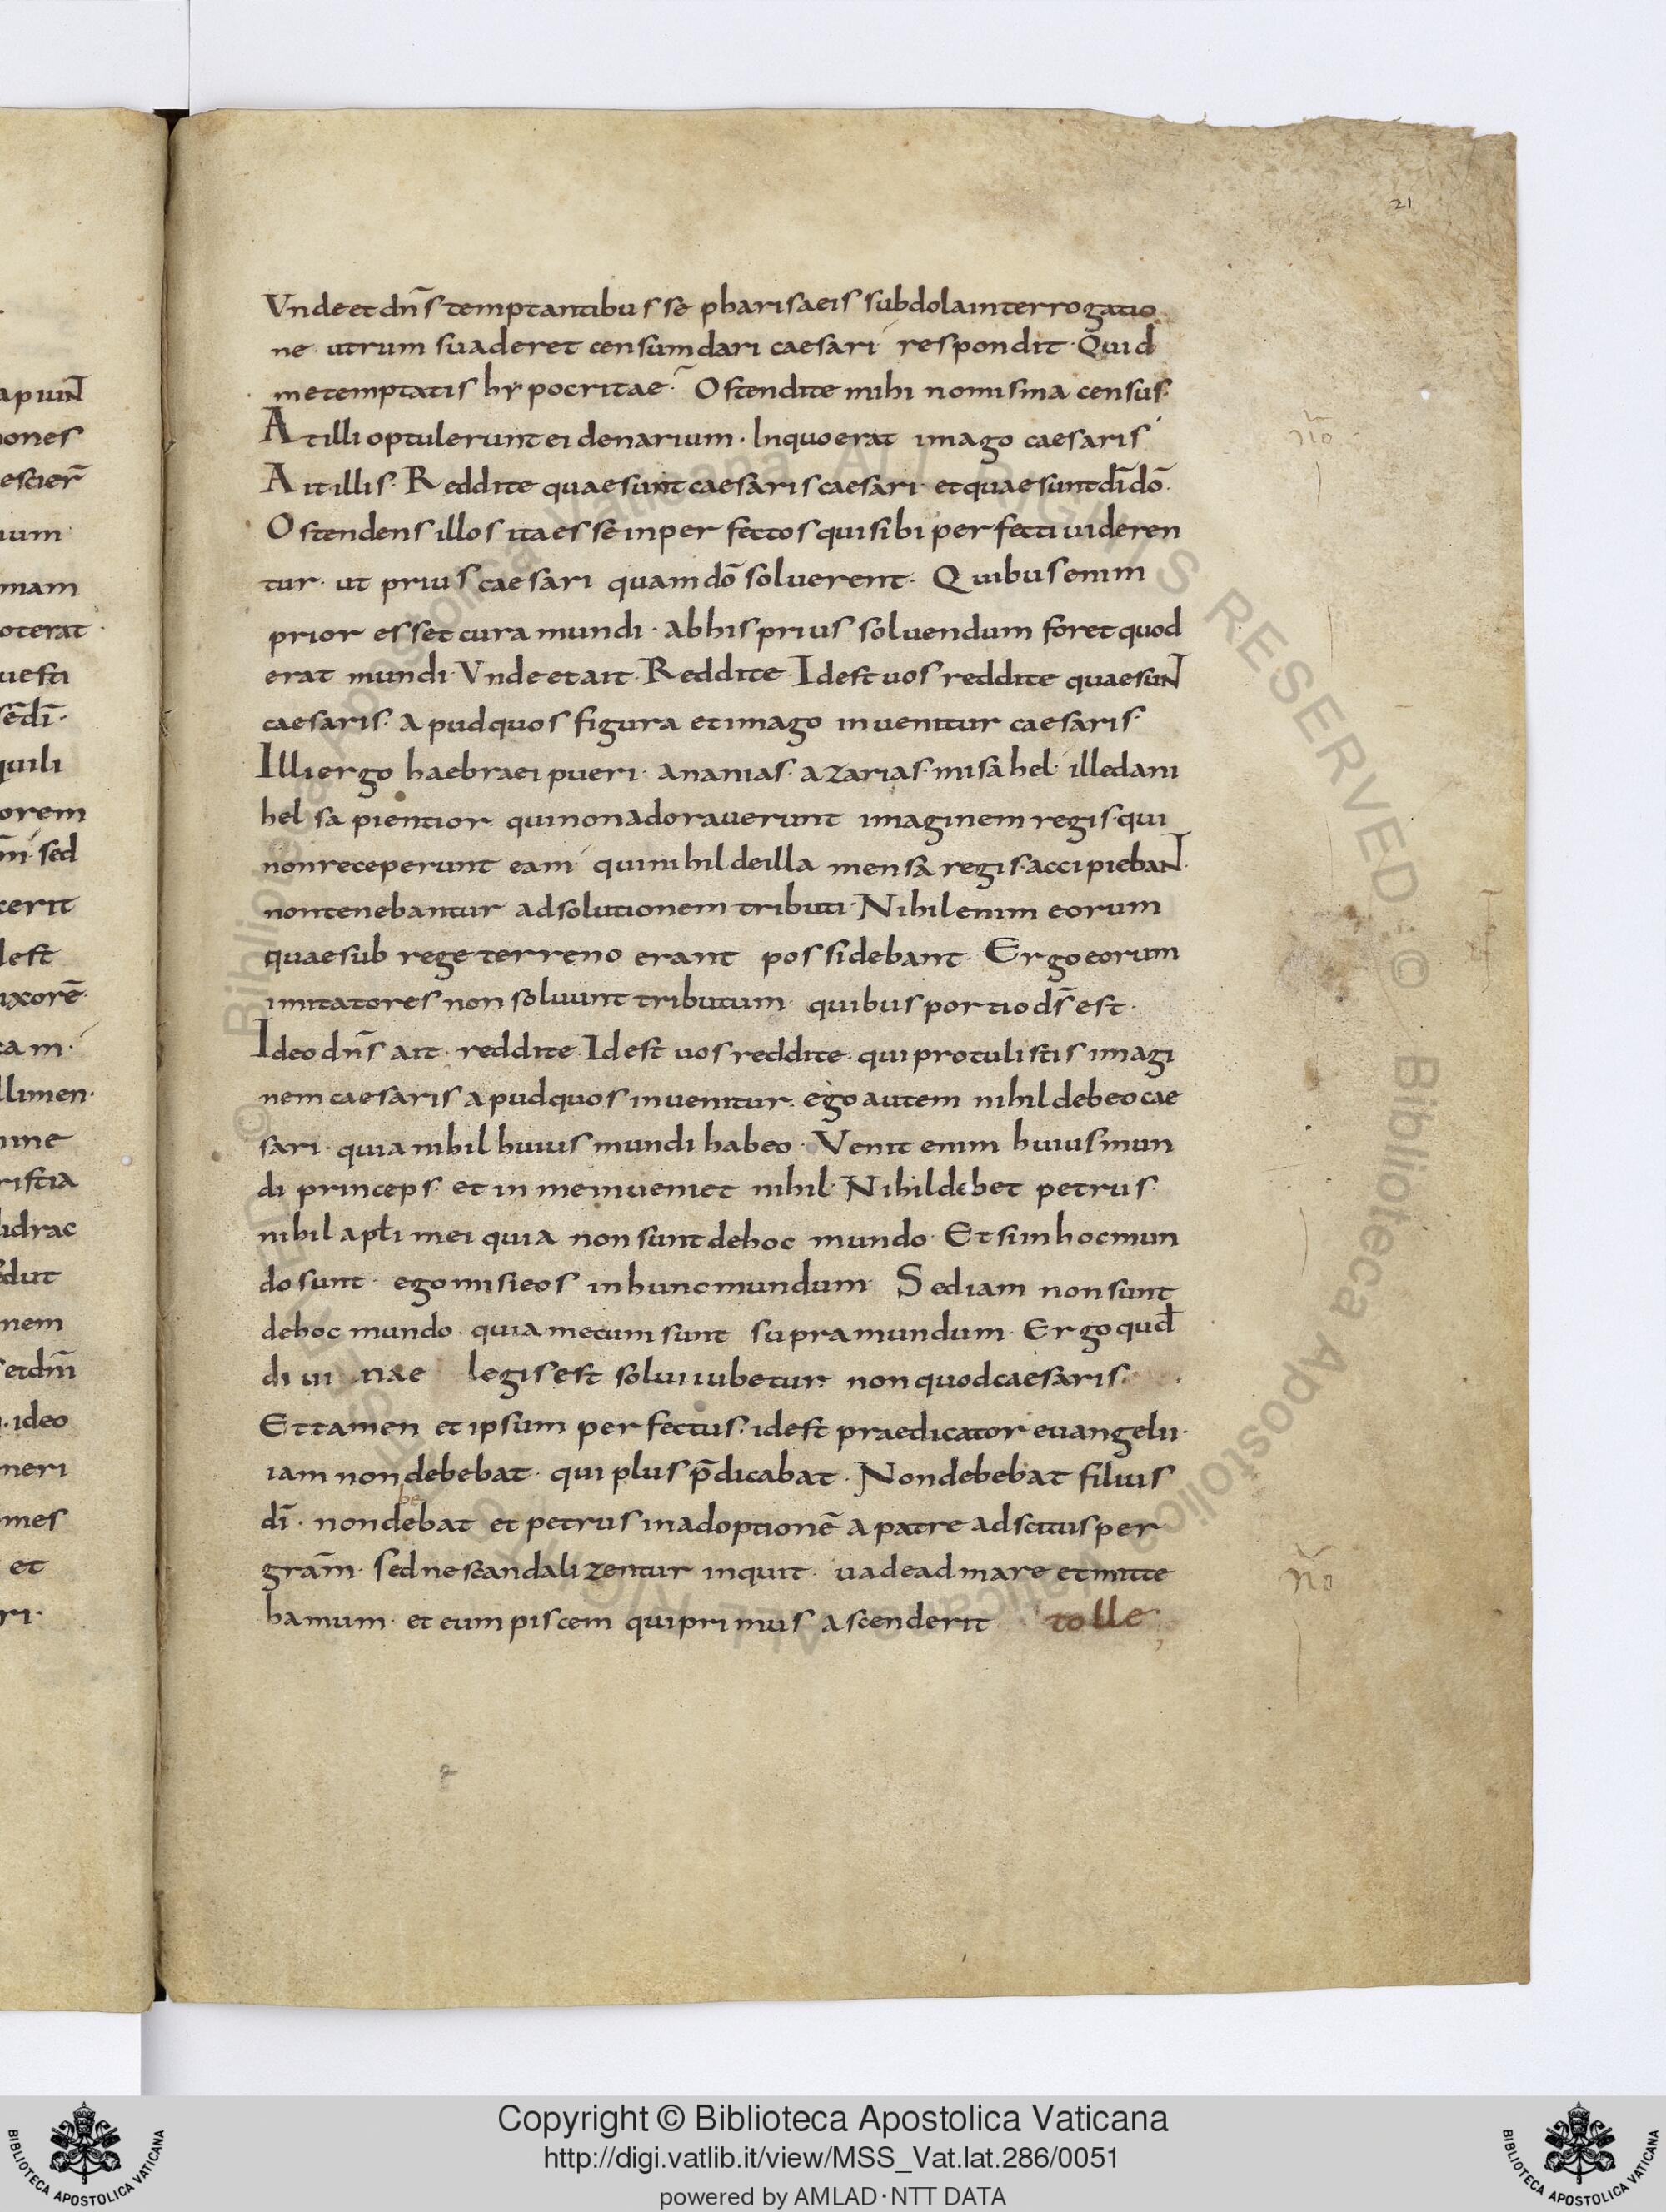 21
Vnde et dn̄s temptantibus se pharisaeis subdola interrogatio
ne· utrum suaderet censum dari caesari respondit· Quid
me temptatis hypocritae· Ostendite mihi nomisma census·
At illi optulerunt ei denarium· In quo erat imago caesaris
Ait illis· Reddite quae sunt caesaris caesari· et quae sunt dī dō·
Ostendens illos ita esse inperfectos qui sibi perfecti uideren
tur· ut prius caesari quam dō soluerent· Quibus enim
prior esset cura mundi· ab his prius soluendum foret quod
erat mundi· Vnde et ait· Reddite· Id est uos reddite quae sunt
caesaris· apud quos figura et imago inuenitur caesaris·
Illi ergo haebraei pueri· ananias· azarias· misahel· ille dani
hel sapientior· qui non adorauerunt imaginem regis· qui
non receperunt eam· qui nihil de illa mensa regis· accipiebant·
non tenebantur ad solutionem tributi· Nihil enim eorum
quae sub rege terreno erant possidebant· Ergo eorum
imitatores non soluunt tributum· quibus portio ds̄ est·
Ideo dn̄s ait· reddite· Id est uos reddite· qui protulistis imagi
nem caesaris apud quos inuenitur· ego autem nihil debeo cae
sari· quia nihil huius mundi habeo· Venit enim huius mun
di princeps· et in me inueniet nihil· Nihil debet petrus·
nihil apłi mei quia non sunt de hoc mundo· Et si in hoc mun
do sunt· ego misi eos in hunc mundum· Sed iam non sunt
de hoc mundo· quia mecum sunt supra mundum· Ergo quđ
diuinae legis est solui iubetur· non quod caesaris·
Et tamen et ipsum perfectus· id est praedicator euangelii·
iam non debebat· qui plus p̄dicabat· Non debebat filius
be
dī· non debat et petrus in adoptionē a patre adscitus per
gram̄· sed ne scandalizentur inquit· uade ad mare et mitte
hamum· et eum piscem qui primus ascenderit tolle
apuunt
ones
escier̄
ium
mam
oterat·
uesti
sēdī·
quili
orem
m̄ sed
cerit
dest
uxorē·
cam·
llimen·
ine
ristia
lidrac
edut
nem
et dm̄
ideo
neri
mes
et
ri·
© Biblioteca Apostolica Vaticana ALL RIGHTS RESERVED
Copyright © Biblioteca Apostolica Vaticana
http://digi.vatlib.it/view/MSS_Vat.lat.286/0051
powered by AMLAD·NTT DATA
BIBLIOTECA APOSTOLICA VATICANA
BIBLIOTECA APOSTOLICA VATICANA